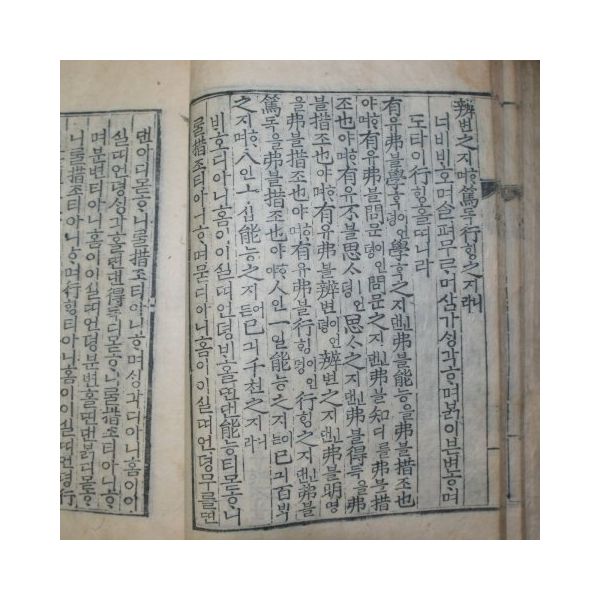 辨변之지ᄒᆞ며篤독行ᄒᆡᆼ之지니라
너비ᄇᆡ호며ᄉᆞᆯ펴무르며삼가ᄉᆡᆼ각ᄒᆞ며ᄇᆞᆰ이분변ᄒᆞ며
도타이行ᄒᆡᆼ홀띠니라
有유弗블學ᄒᆞᆨ이언뎡學ᄒᆞᆨ之진댄弗블能능을弗블措조也
야ᄒᆞ며有유弗블問문이언뎡問문之진댄弗블知디를弗블措
조也야ᄒᆞ며有유不블思ᄉᆞㅣ언뎡思ᄉᆞ之진댄弗블得득을弗
블措조也야ᄒᆞ며有유弗블辨변이언뎡辨변之진댄弗블明명
을弗블措조也야ᄒᆞ며有유弗블行ᄒᆡᆼ이언뎡行ᄒᆡᆼ之진댄弗블
篤독을弗블措조也야ᄒᆞ야人인一일能능之지어든己긔百ᄇᆡᆨ
之지ᄒᆞ며人인十십能능之지어든己긔千쳔之지니라
ᄇᆡ호디아니홈이이실띠언뎡ᄇᆡ홀띤댄能능티몯ᄒᆞ니
를措조티아니ᄒᆞ며묻디아니홈이이실띠언뎡무를띤
댄아디몯ᄒᆞ니를措조티아니ᄒᆞ며ᄉᆡᆼ각디아니홈이이
실띠언뎡ᄉᆡᆼ각홀띤댄得득디몯ᄒᆞ니를措조티아니ᄒᆞ
며분변티아니홈이이실띠언뎡분변홀띤댄ᄇᆞᆰ디몯ᄒᆞ
니를措조티아니ᄒᆞ며行ᄒᆡᆼ티아니홈이이실띠언뎡行